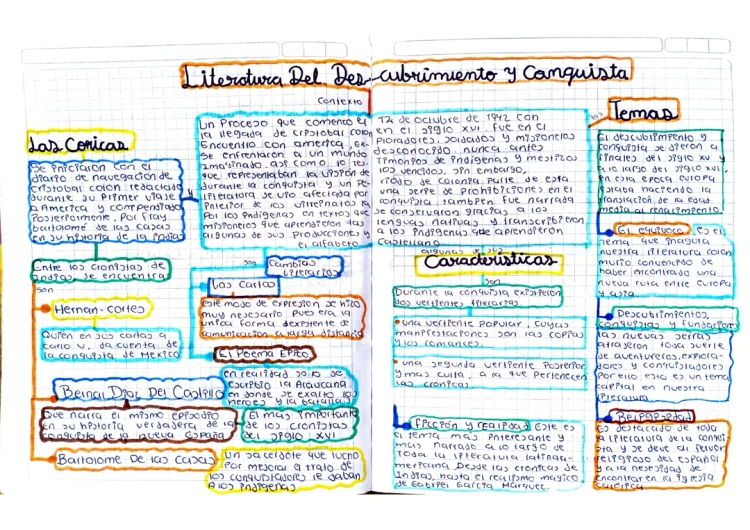 Literatura Del Descubrimiento y Conquista
Contexto
Un Proceso que comenzo el 12 de octubre de 1942 con
la llegada de cristobal colon en el siglo XVI, fue en el
Encuentro con america, Exploradores, soldados y misioneros
se enfrentaron a un mundo desconocido, nunca antes
imaginado asi como
que representaban la vision de los vencidos, sin embargo,
durante la conquista y un Periodo de colonia parte de esta
literatura se vio afectada por una serie de prohibiciones en el
interior de los virreinatos la conquista tambien fue narrada
Por los indigenas en textos que se conservaron gracias a los
misioneros que aprendieron las lenguas nativas y transcribieron
algunas de sus producciones y a los indigenas que aprendieron
el alfabeto Castellano
Las Cronicas
Se iniciaron con el
diario de navegación de
cristobal colon redactado
durante su Primer viaje
a America y compendiado
Posteriormente, Por fray
bartolomé de las casas
en su historia de la indias
y
Entre los cronistas de
indias se encuentra
son
Hernan-cortes
Quien en sus cartas a
carlo V, da cuenta de
la conquista de Mexico
Bernal Diaz Del Castillo
Que narra el mismo episodio
en su historia verdadera de la
conquista de la nueva España
El mas importante
de los cronistas
del siglo XVI
Bartolome De las Casas
Un sacerdote que lucho
Por mejorar el trato de
los conquistadores le daban
A los indigenas
son
Cambios
literarios
Las Cartas
este modo de expresión se hizo
muy necesario pues era la
unica forma dexistente de
comunicación a larga distancia
El Poema Epico
en realidad solo se
escribio la Araucana
en donde se exalto los
heroes y la batallas
algunas de sus
Caracteristicas
son
Durante la conquista existieron
dos vertientes literarias
una vertiente popular, cuyas
manifestaciones son las coplas
y los romances.
una segunda vertiente Posterior
y mas culta, a la que Pertenecen
las cronicas.
Ficción y realidad Este es
el tema mas interesante y
mas narrado a lo largo de
toda la literatura latinoa-
mericana Desde las cronicas de
Indias, hasta el realismo magico
de Gabriel García Marquez.
los
Temas
El descubrimiento y
conquista se dieron a
finales del siglo XV y
a lo largo del siglo XVI,
en esta epoca europa
estaba haciendo la
translación de la edad
media al renacimiento
El equivoco es el
tema que inagura
nuestra literatura colon
murio convencido de
haber encontrado una
nueva ruta entre Europa
y asia.
Descubrimientos,
conquistas y fundaciones
las nuevas tierras
atrajeron toda suerte
de aventureros, explora-
dores y conquistadores
Por ello este es un tema
capital en nuestra
literatura
Religiosidad
es destacado de toda
la literatura de la conqui
sta y se debe al fervor
religioso del español
y a la necesidad de
encontrar en la iglesia
catolica